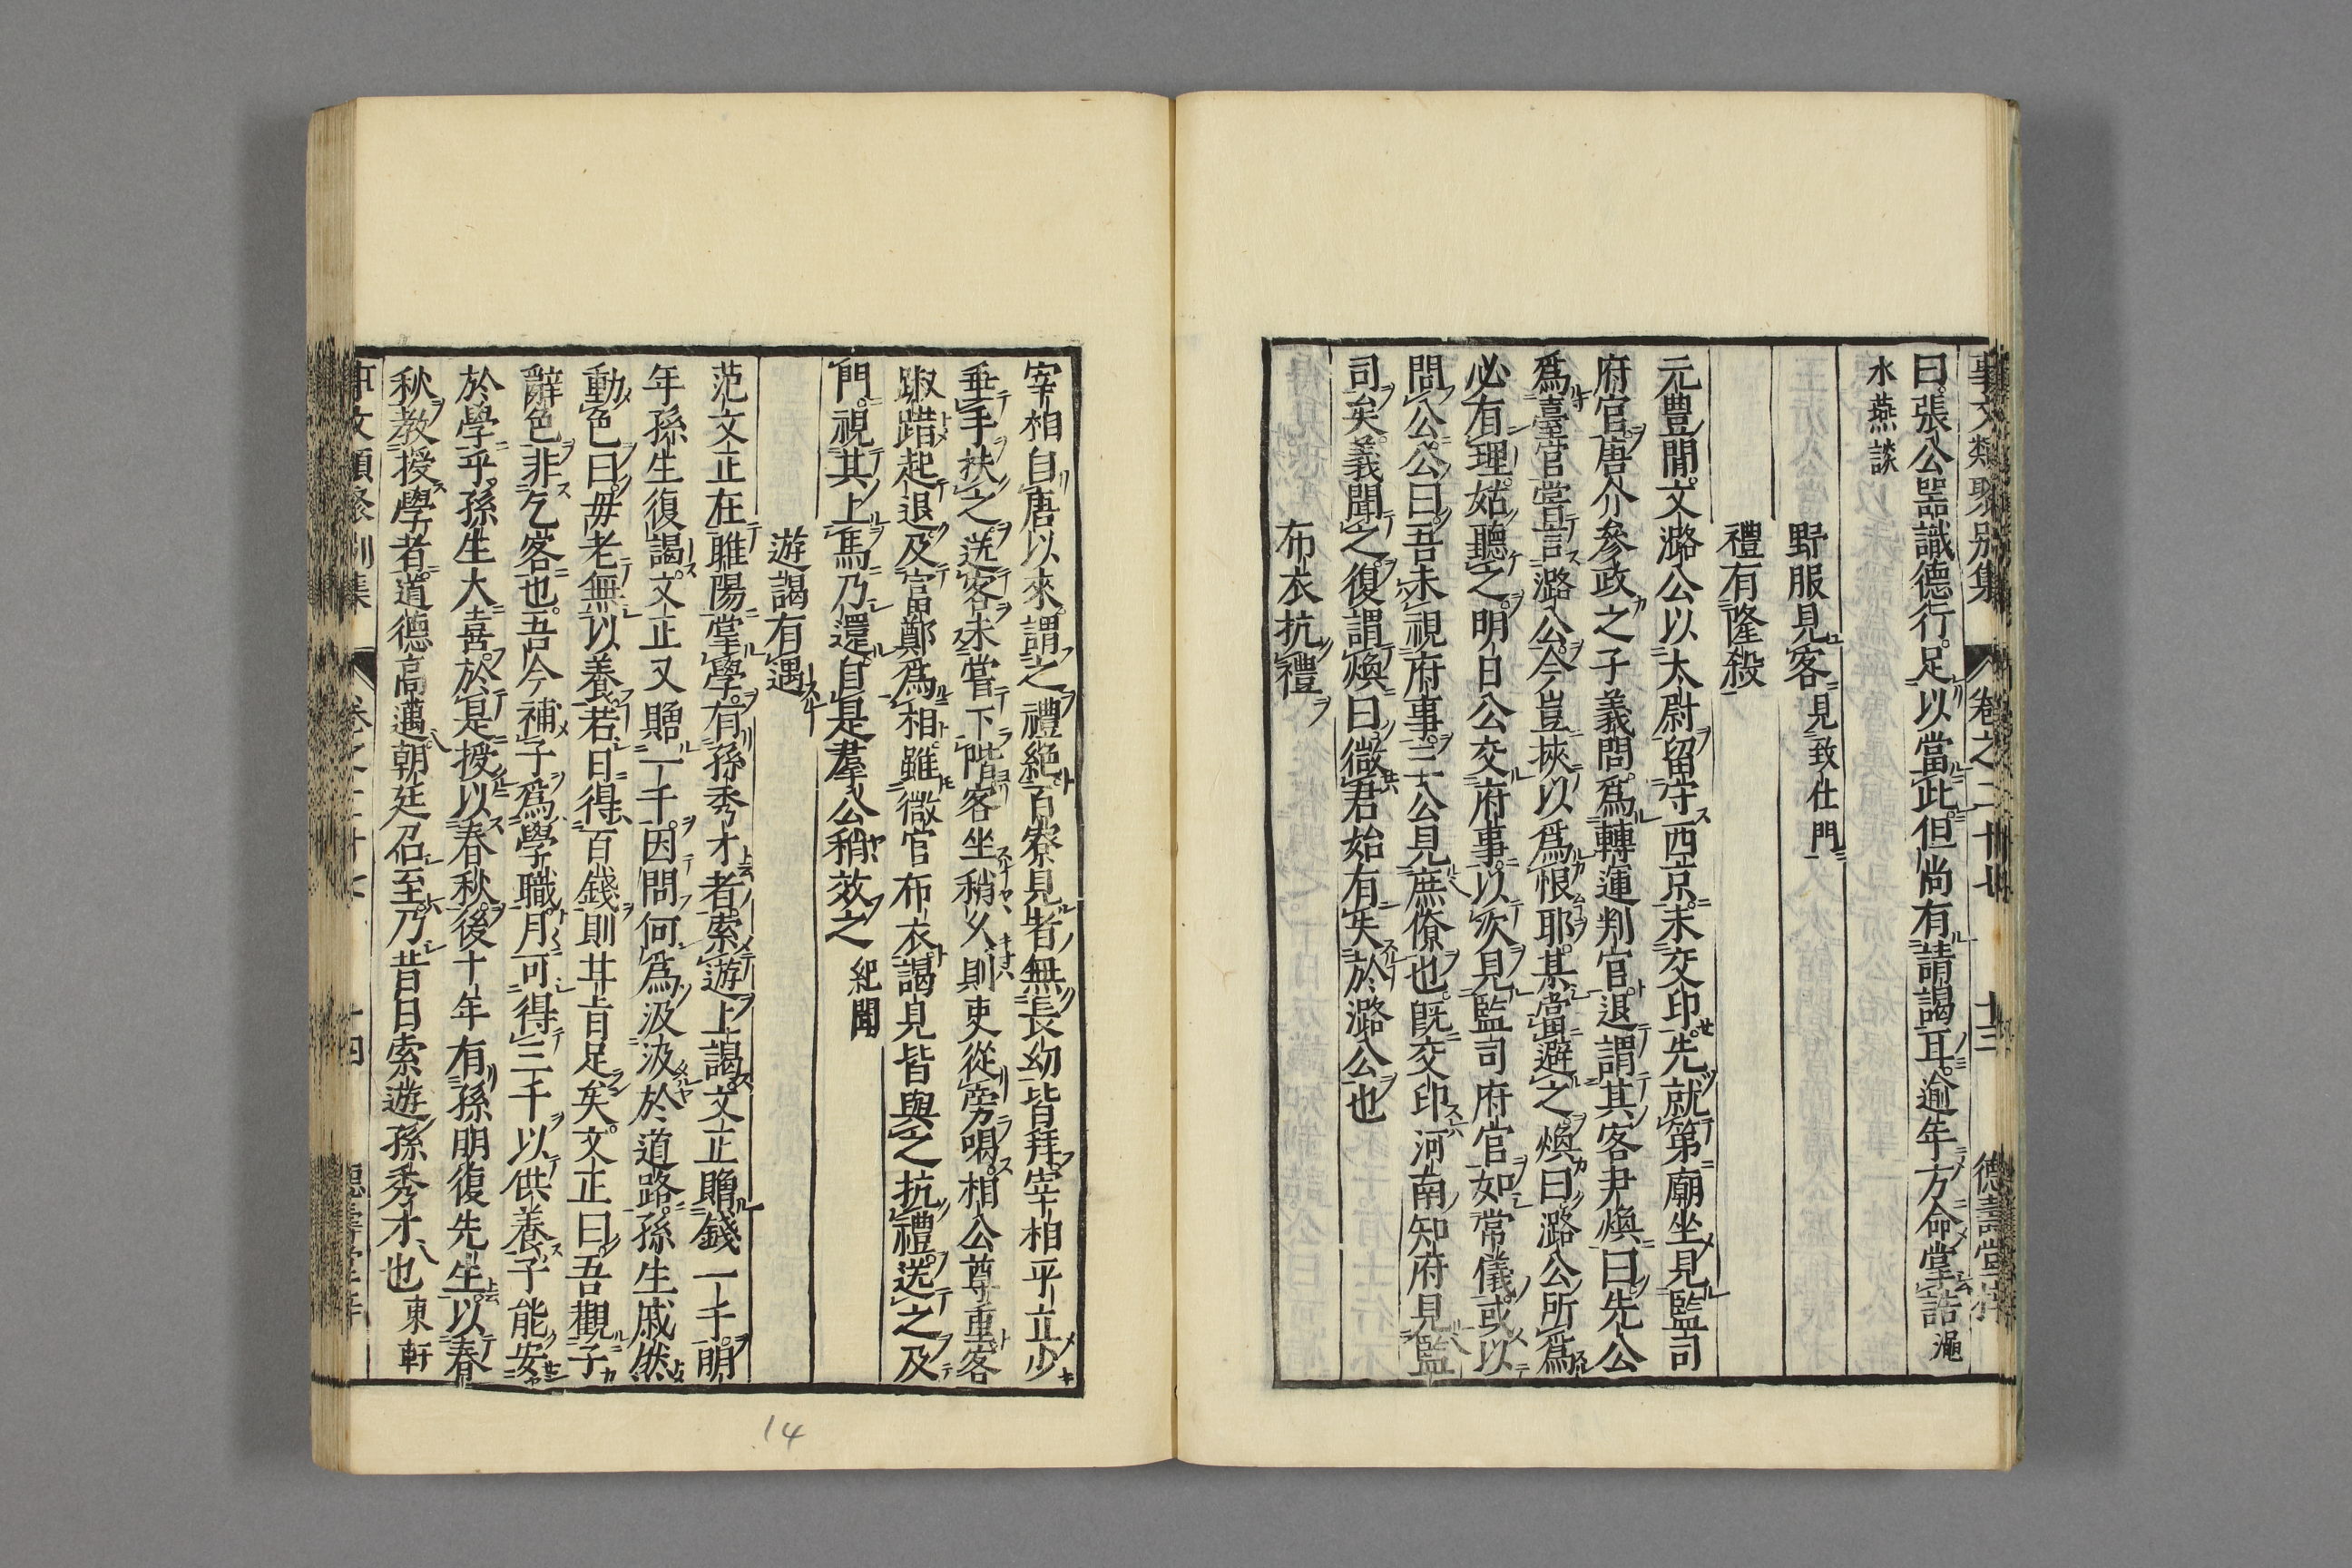 事文類聚別集 卷之二十七 十三 德壽堂梓
曰張公器識德行足以當此但尚有請謁耳逾年方命掌誥 澠
水燕談
野服見客 見致仕門
禮有隆殺
元豊間文潞公以太尉留守西京未交印先就第廟坐見監司
府官唐介參政之子義問爲轉運判官退謂其客尹煥曰先公
爲臺官嘗言潞公今豈挾以爲恨耶某當避之煥曰潞公所爲
必有理姑聽之明日公交府事以次見監司府官如常儀或以
問公公曰吾未視府事三公見庶僚也既交印河南知府見監
司矣義聞之復謂煥曰微君始有矣於潞公也
布衣抗禮
宰相自唐以來謂之禮絶百寮見者無長幼皆拜宰相平立少
垂手扶之送客未嘗下階客坐稍久則吏從旁唱相公尊重客
踧踖起退及富鄭爲相雖微官布衣謁見皆與之抗禮送之及
門視其上馬乃還自是羣公稍效之 紀聞
遊謁有遇
范文正在睢陽掌學有孫秀才者索遊上謁文正贈錢一千明
年孫生復謁文正又贈一千因問何爲汲汲於道路孫生戚然
動色曰毋老無以養若日得百錢則甘旨足矣文正曰吾觀子
辭色非乞客也吾今補子爲學職月可得三千以供養子能安
於學乎孫生大喜於是授以春秋後十年有孫朋復先生以春
秋教授學者道德高邁朝廷召至乃昔日索遊孫秀才也 東軒